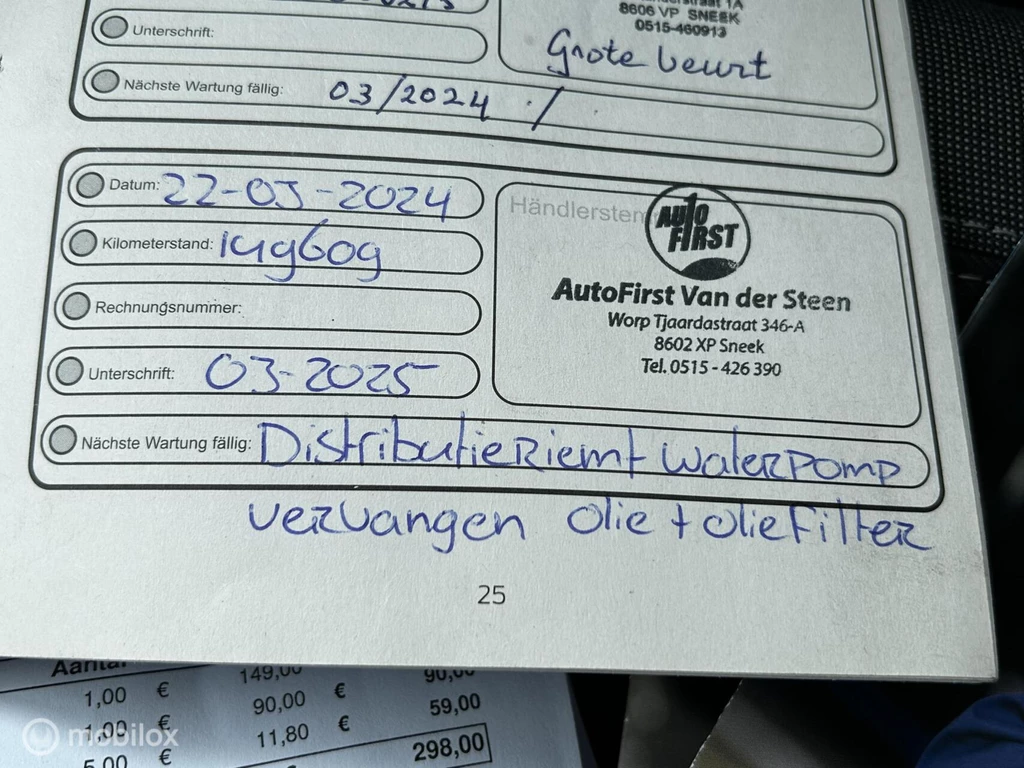 8606 VP SNEEK
0515-460913
Unterschrift:
Grote beurt
Nächste Wartung fällig: 03/2024 ./
Datum: 22-03-2024
Kilometerstand: 149609
Händlerstem
AUTO
FIRST
AutoFirst Van der Steen
Worp Tjaardastraat 346-A
8602 XP Sneek
Tel. 0515 - 426 390
Rechnungsnummer:
Unterschrift: 03-2025
Nächste Wartung fällig: Distributieriem + waterpomp
vervangen olie + oliefilter
25
Aantal
149,00 90,00
1,00 € 90,00 € 59,00
1,00 € 11,80 € 298,00
5,00 €
mobilox